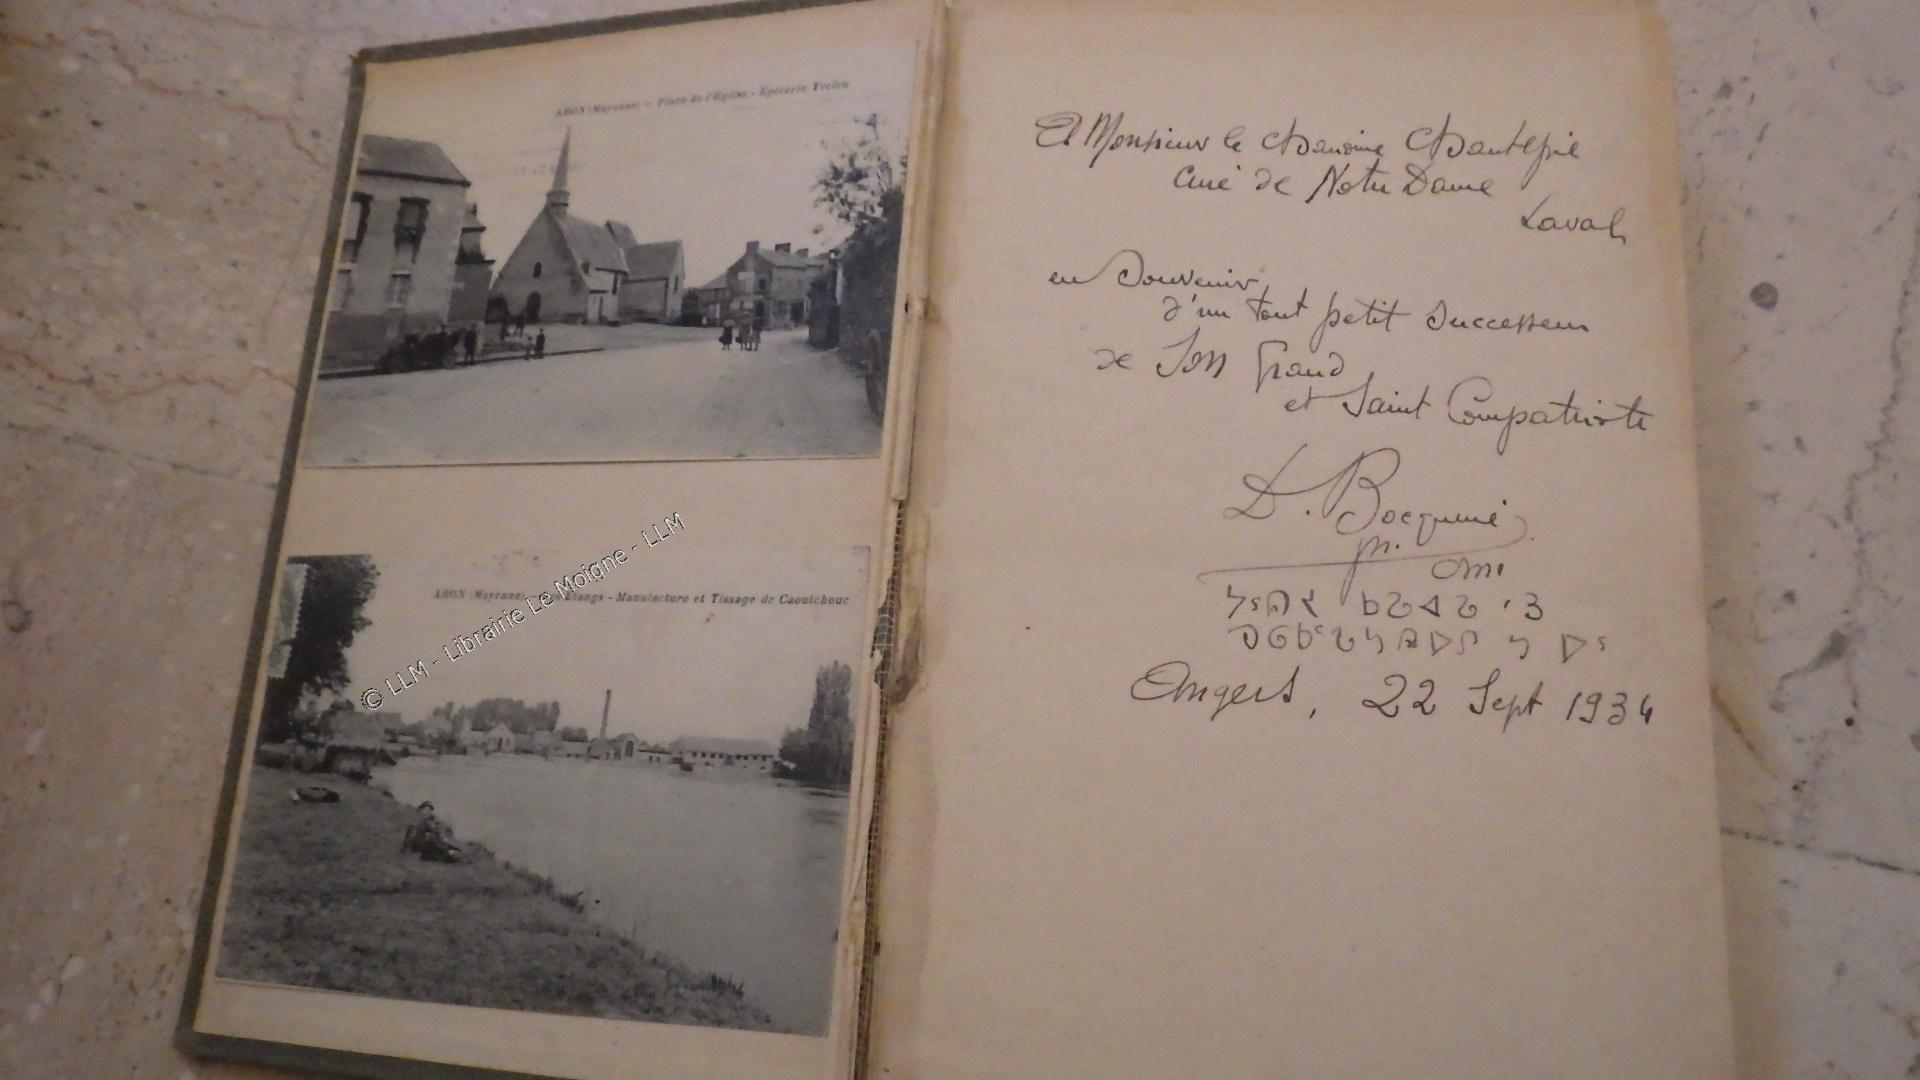 ARON (Mayenne) - Place de l'Eglise - Epicerie
ARON (Mayenne) - Etangs - Manufacture et Tissage de Caoutchouc
© LLM - Librairie Le Moigne - LLM
A Monsieur le Chanoine Chantepie
Curé de Notre Dame
Laval
en Souvenir
d'un tout petit Successeur
de Son Grand
et Saint Compatriote
D. Bocquené
omi
Angers, 22 Sept 1934